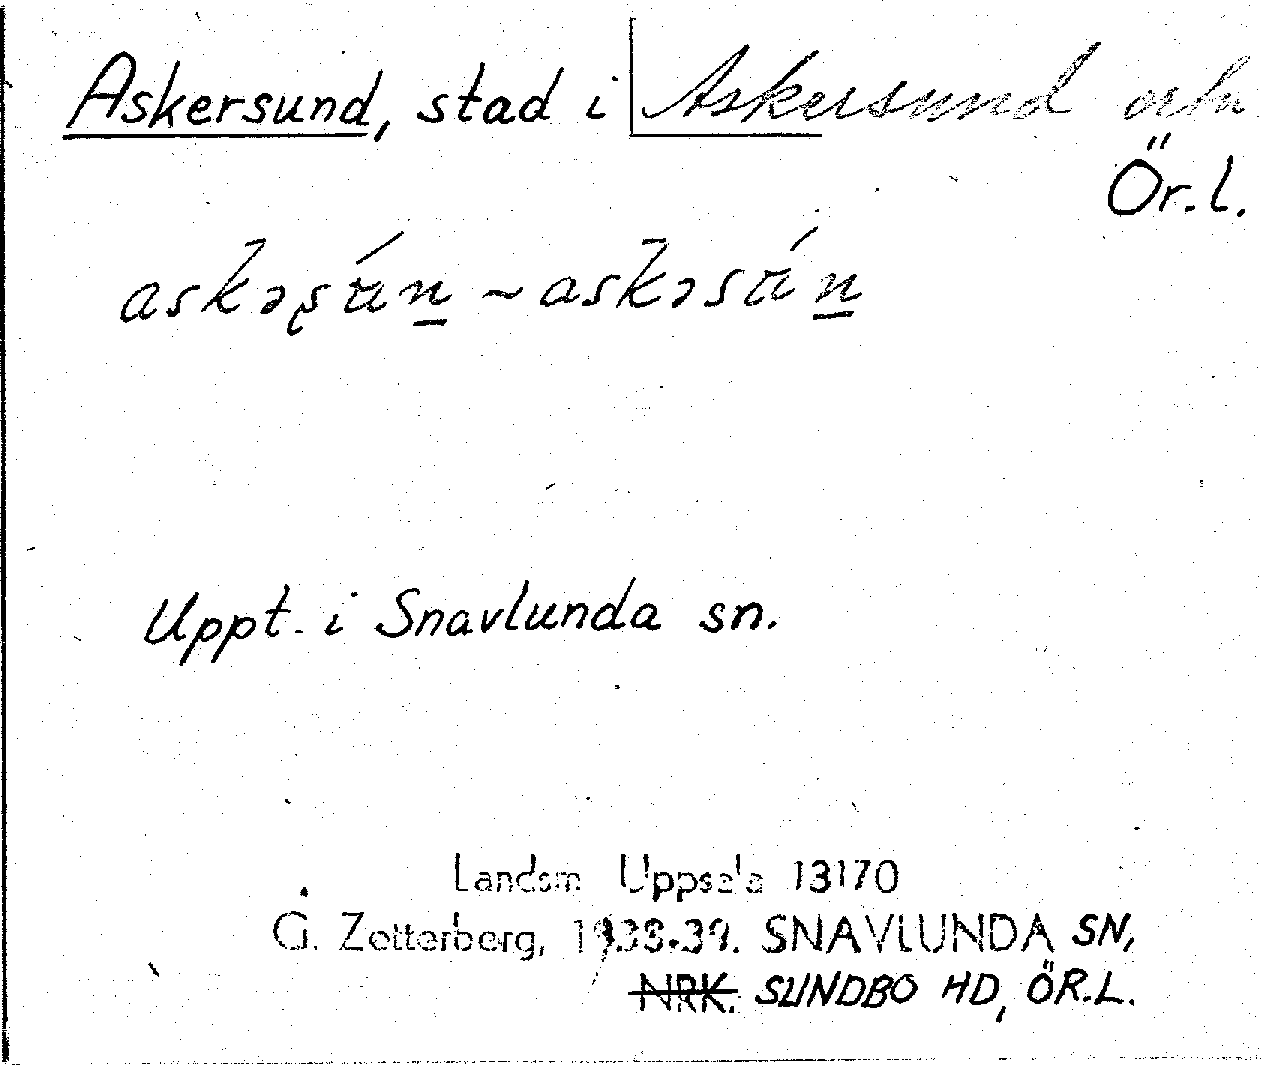 Askersund, stad i Askersund
Ör.l.
askəʂún ~ askəsún
Uppt. i Snavlunda sn.
Landsm Uppsala 13170
G. Zetterberg, 1938-39. SNAVLUNDA SN,
NRK. SUNDBO HD, ÖR.L.